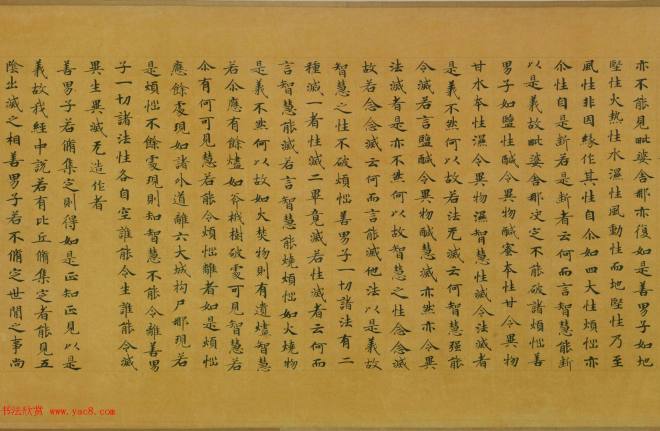 亦不能見毗婆舍那亦復如是善男子如地
堅性火熱性水濕性風動性而地堅性乃至
風性非因緣作其性自尒如四大性煩惱亦
尒性自是斷若是斷者云何而言智慧能斷
以是義故毗婆舍那决定不能破諸煩惱善
男子如鹽性醎令異物醎蜜本性甘令異物
甘水本性濕令異物濕智慧性滅令法滅者
是義不然何以故若法无滅云何智慧强能
令滅若言鹽醎令異物醎慧滅亦尒令異
法滅者是亦不然何以故智慧之性念念滅
故若念念滅云何而言能滅他法以是義故
智慧之性不破煩惱善男子一切諸法有二
種滅一者性滅二畢竟滅若性滅者云何而
言智慧能滅若言智慧能燒煩惱如火燒物
是義不然何以故如火焚物則有遺燼智慧
若尒應有餘燼如斧伐樹斫處可見智慧若
尒有何可見慧若能令煩惱離者如是煩惱
應餘處現如諸外道離六大城拘尸那現若
是煩惱不餘處現則知智慧不能令離善男
子一切諸法性各自空誰能令生誰能令滅
異生異滅无造作者
善男子若脩集定則得如是正知正見以是
義故我經中說若有比丘脩集定者能見五
陰出滅之相善男子若不脩定世間之事尚
书法欣赏
www.yac8.com